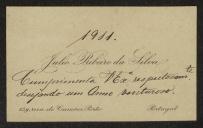 1911.
Julio Ribeiro da Silva
Cumprimenta V. Exª respeitosamte
desejando um Anno venturoso.
rua do Campos Porto Portugal